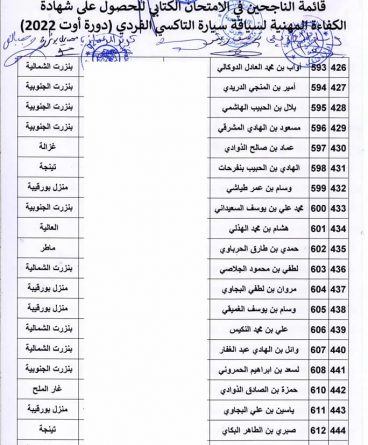 قائمة الناجحين في الإمتحان الكتابي للحصول على شهادة
الكفاءة المهنية لسياقة سيارة التاكسي الفردي (دورة أوت 2022)
426 593 نواب بن محمد العادل الدوكالي بنزرت الشمالية
427 594 أمير بن المنجي الدريدي بنزرت الجنوبية
428 595 بلال بن الحبيب الهاشمي بنزرت الجنوبية
429 596 مسعود بن الهادي المشرقي بنزرت الجنوبية
430 597 عماد بن صالح الذوادي غزالة
431 598 الهادي بن الحبيب بنفرحات تينجة
432 599 وسام بن عمر طياشي منزل بورقيبة
433 600 محمد علي بن يوسف السعيداني بنزرت الجنوبية
434 601 هشام بن محمد الهذلي العالية
435 602 حمدي بن طارق الحرباوي ماطر
436 603 لطفي بن محمود الجلاصي بنزرت الشمالية
437 604 مروان بن لطفي البجاوي منزل بورقيبة
438 605 وسام بن يوسف الغميقي منزل بورقيبة
439 606 علي بن محمد النكيس بنزرت الشمالية
440 607 وائل بن الهادي عبد الغفار بنزرت الشمالية
441 608 لسعد بن ابراهيم الحمروني بنزرت الجنوبية
442 610 حمزة بن الصادق الذوادي غار الملح
443 611 ياسين بن علي البجاوي منزل بورقيبة
444 612 صبري بن الطاهر البكاي تينجة